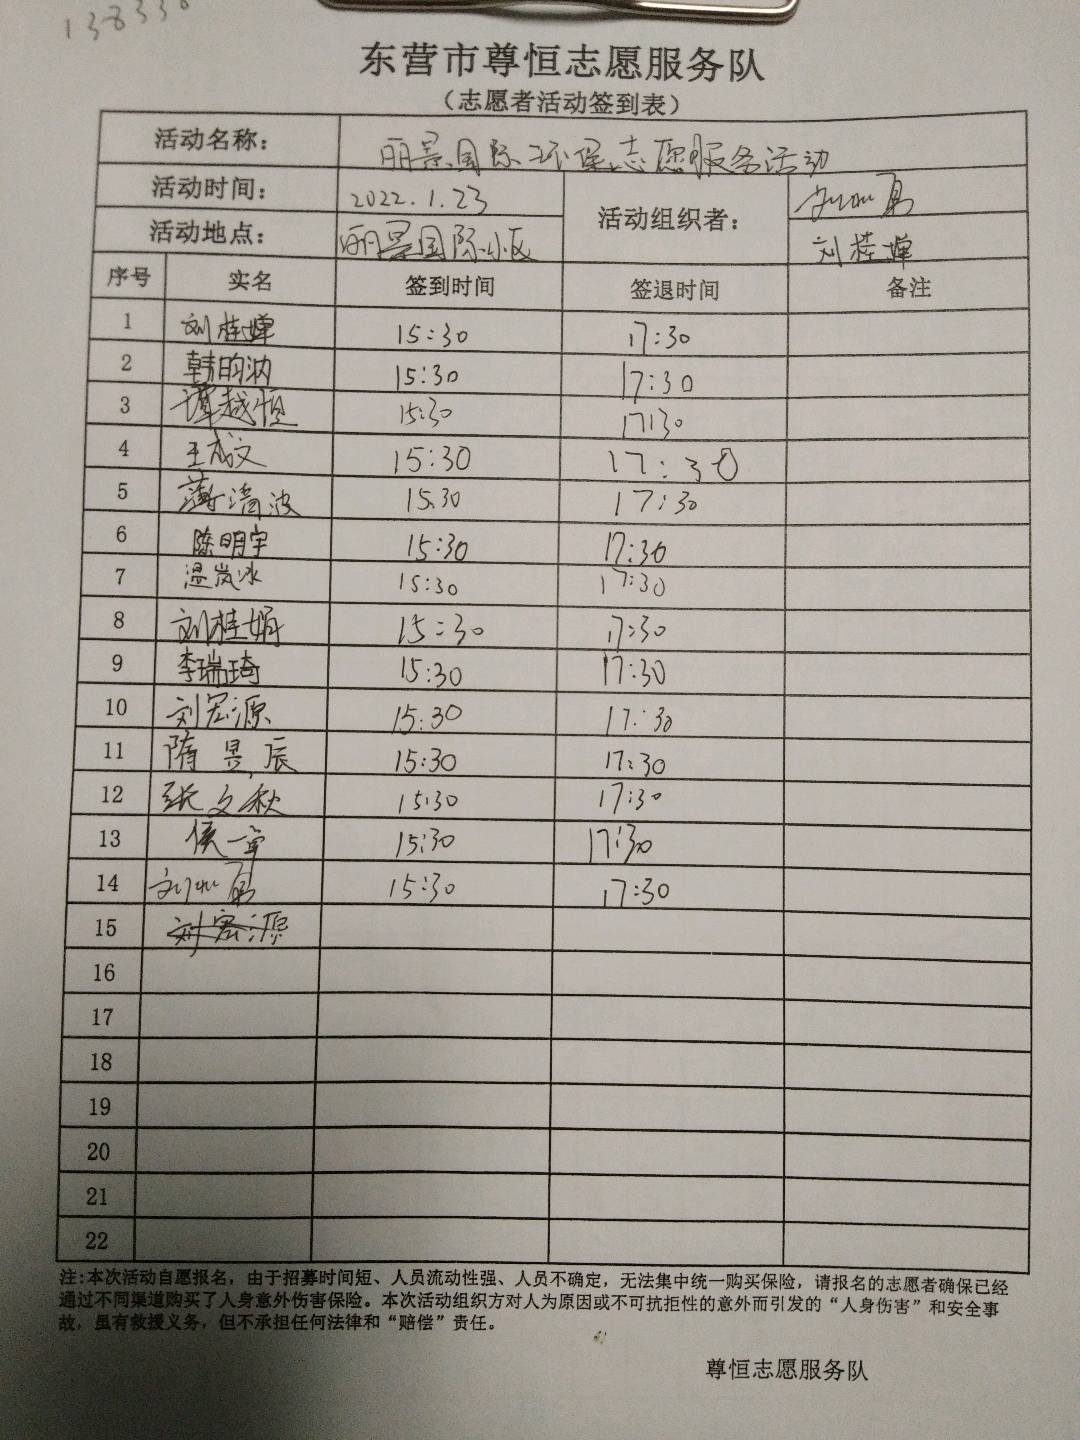 东营市尊恒志愿服务队
（志愿者活动签到表）
活动名称： 丽景国际环保志愿服务活动
活动时间： 2022.1.23 活动组织者：
活动地点： 丽景国际小区 刘桂婵
序号 实名 签到时间 签退时间 备注
1 刘桂婵 15:30 17:30
2 韩昀汭 15:30 17:30
3 谭越恒 15:30 17:30
4 王成文 15:30 17:30
5 薄清波 15:30 17:30
6 陈明宇 15:30 17:30
7 温岚冰 15:30 17:30
8 刘桂娟 15:30 17:30
9 李瑞琦 15:30 17:30
10 刘宏源 15:30 17:30
11 隋昱辰 15:30 17:30
12 张文秋 15:30 17:30
13 侯一章 15:30 17:30
14 15:30 17:30
15 刘宏源
16
17
18
19
20
21
22
注:本次活动自愿报名，由于招募时间短、人员流动性强、人员不确定，无法集中统一购买保险，请报名的志愿者确保已经
通过不同渠道购买了人身意外伤害保险。本次活动组织方对人为原因或不可抗拒性的意外而引发的“人身伤害”和安全事
故，虽有救援义务，但不承担任何法律和“赔偿”责任。
尊恒志愿服务队